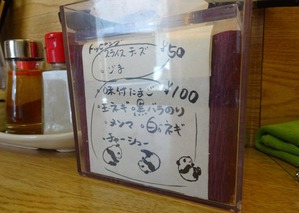 トッピング
スライスチーズ ¥50
・のり
・味付たまご ¥100
・玉ネギ ・黒バラのり
・メンマ ・白ネギ
・チャーシュー